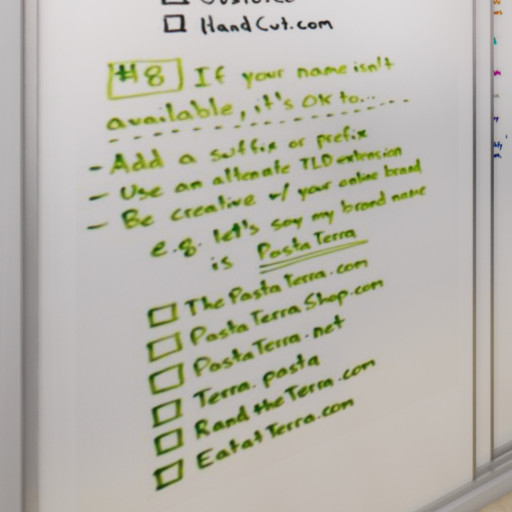 HandCut.com
#8 If your name isn't
available, it's ok to...
- Add a suffix or prefix
- Use an altenate TLD extension
- Be creative w/ your online brand
e.g. let's say my brand name
is Pasta Terra
ThePastaTerra.com
PastaTerraShop.com
PastaTerra.net
Terra.pasta
RandtheTerra.com
EatatTerra.com